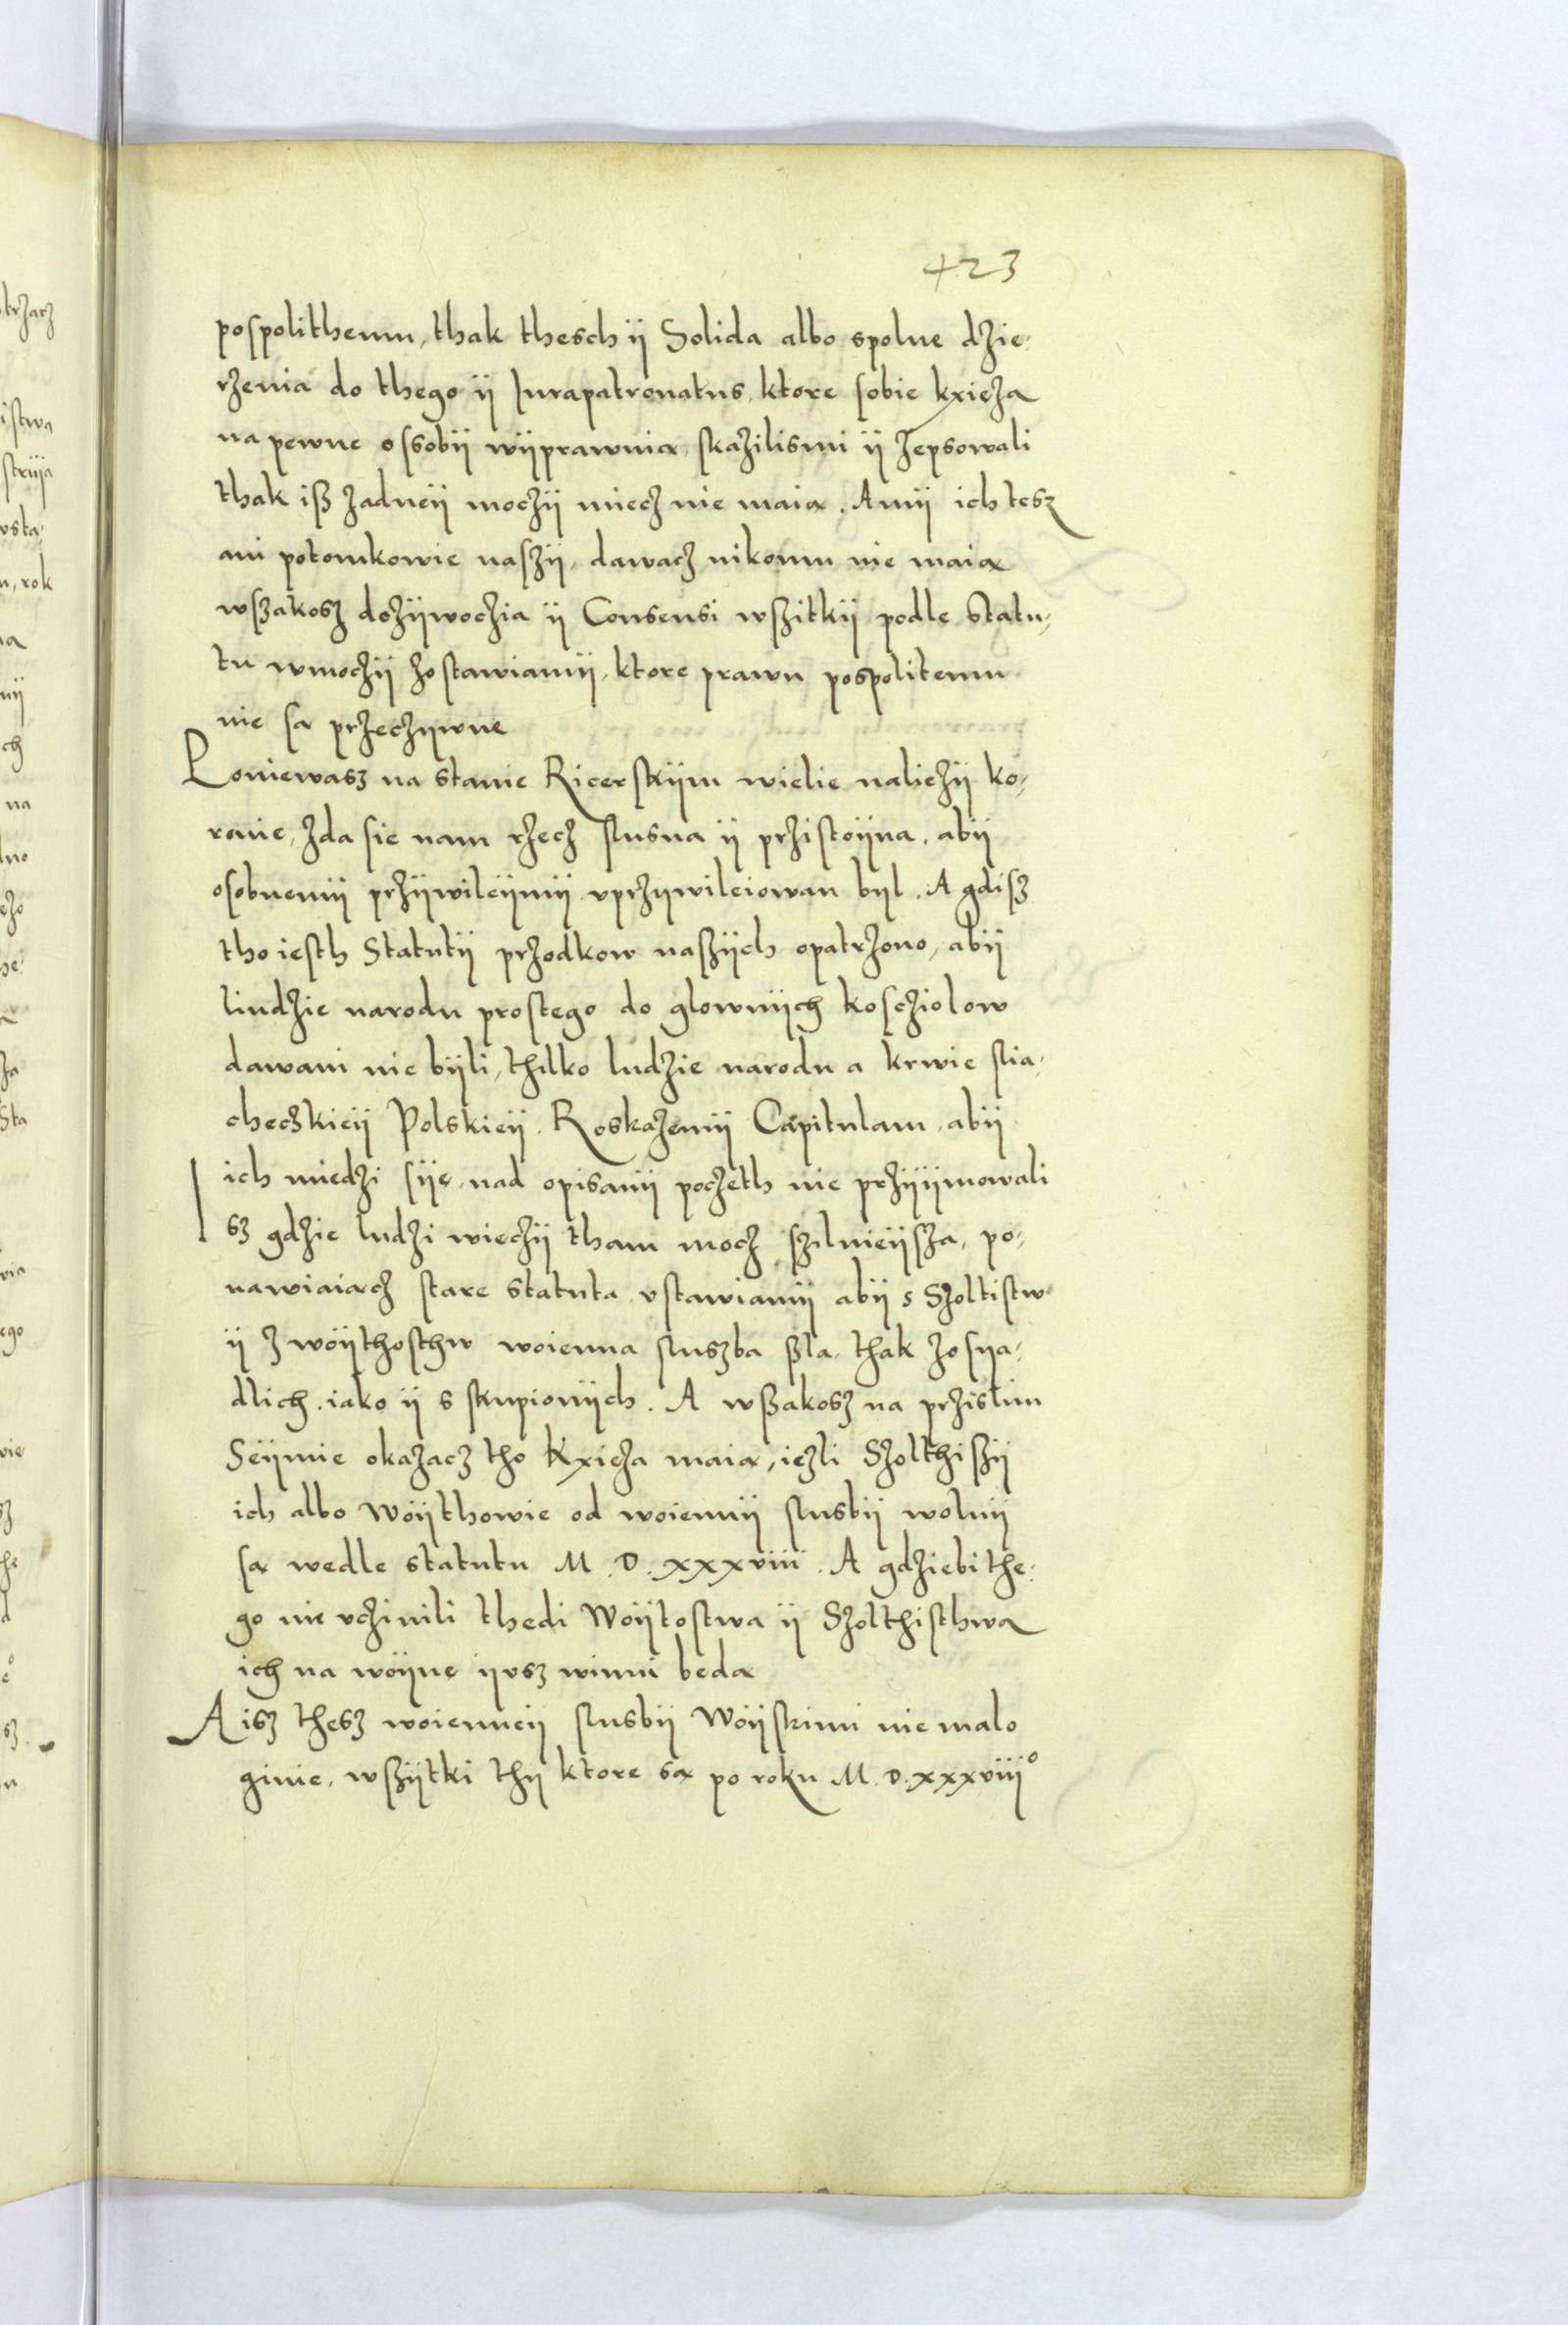 423
pospolithemu, thak thesch ÿ Solida albo spolne dzie-
rzenia do thego ÿ Iurapatronatus, ktore sobie kxieza
na pewne ossobÿ wÿprawuia skazilismi ÿ zepsowali
thak iß zadneÿ moczÿ miecz nie maia. A mÿ ich tesz
ani potomkowie naszÿ, dawacz nikomu nie maia
wszakosz dozÿwoczia ÿ Consensi wszitkÿ podle Statu-
tu wmoczÿ zostawiamÿ, ktore prawu pospolitemu
nie sa przeczÿwne
Poniewasz na stanie Ricerskÿm wielie naliezÿ ko-
ronie, zda sie nam rzecz slusna ÿ przistoÿna, abÿ
osobnemÿ przÿwileÿmÿ uprzÿwileiowan bÿl. A gdisz
tho iesth Statutÿ przodkow naszÿch opatrzono, abÿ
liudzie narodu prostego do glownÿch kosciolow
dawani nie bÿli, thilko ludzie narodu a krwie slia-
checzkieÿ Polskieÿ. Roskazemÿ Capitulam, abÿ
ich miedzi sÿe, nad opisanÿ poczeth nie przÿÿmowali
Isz gdzie ludzi wieczÿ tham mocz szilnieÿsza, po-
nawiaiacz stare statuta ustawiamÿ abÿ s Szoltistw
ÿ z wöÿthosthw woienna sluszba szla, thak zosÿa-
dlich, iako ÿ s skupionÿch. A wszakosz na przislim
Seÿmie okazacz tho Kxieza maia, iezli Szolthiszÿ
ich albo Wöÿthowie od woiennÿ slusbÿ wolnÿ
sa wedle statutu M. D. xxxviii. A gdziebi the-
go nie uczinili thedi Wöÿtostwa ÿ Szolthisthwa
ich na wöÿne ÿusz winni beda
A isz thesz woienneÿ slusbÿ Wöÿskimi nie malo
ginie, wszÿtki thÿ ktore sa po roku M. D. xxxviii°